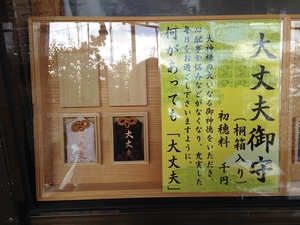 大丈夫御守
(桐箱入り)
初穂料 千円
大神様の大いなる御神徳をいただき、
心配事や悩みなどがなくなり、充実した
毎日をお過ごし下さいますように。
何があっても「大丈夫」
大丈夫
大丈夫